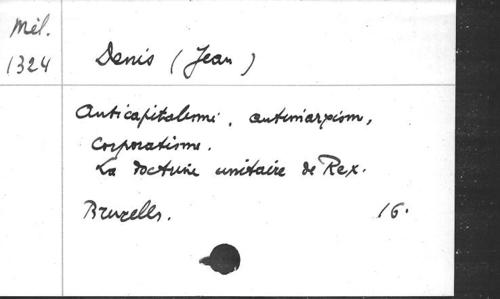 Mél.
1324
Denis (Jean)
Anticapitalisme, antimarxisme,
Corporatisme.
La doctrine unitaire de Rex.
Bruxelles. 16.